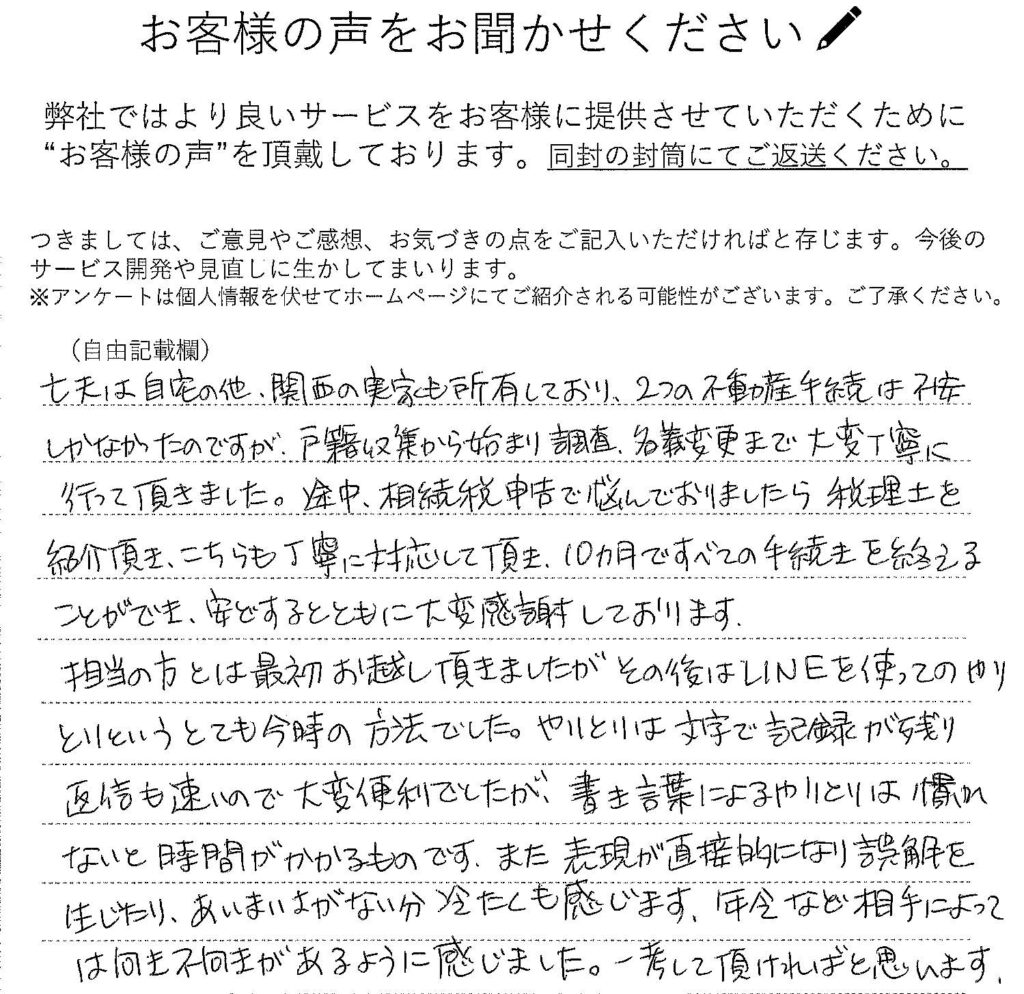 お客様の声をお聞かせください
弊社ではより良いサービスをお客様に提供させていただくために
“お客様の声”を頂戴しております。同封の封筒にてご返送ください。
つきましては、ご意見やご感想、お気づきの点をご記入いただければと存じます。今後の
サービス開発や見直しに生かしてまいります。
※アンケートは個人情報を伏せてホームページにてご紹介される可能性がございます。ご了承ください。
（自由記載欄）
亡夫は自宅の他、関西の実家も所有しており、2つの不動産手続は不安
しかなかったのですが、戸籍収集から始まり調査、名義変更まで大変丁寧に
行って頂きました。途中、相続税申告で悩んでおりましたら税理士を
紹介頂き、こちらも丁寧に対応して頂き、10カ月ですべての手続きを終える
ことができ、安どするとともに大変感謝しております。
担当の方とは最初お越し頂きましたがその後はLINEを使ってのやり
とりというとても今時の方法でした。やりとりは文字で記録が残り
返信も速いので大変便利でしたが、書き言葉によるやりとりは慣れ
ないと時間がかかるものです、また表現が直接的になり誤解を
生じたり、あいまいさがない分冷たくも感じます、年令など相手によって
は向き不向きがあるように感じました。一考して頂ければと思います。